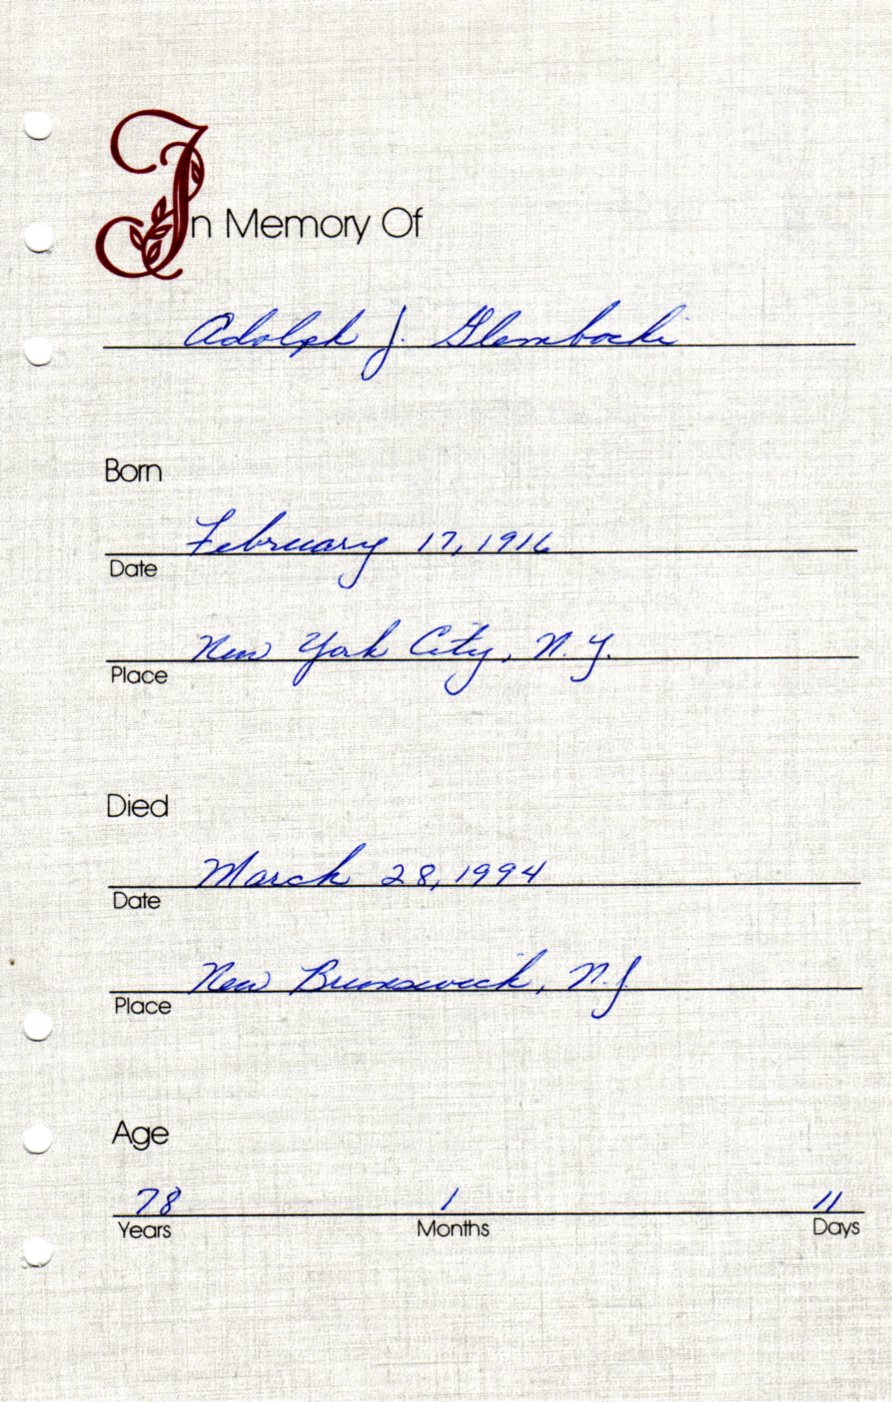 In Memory Of
Adolph J. Glembocki
Born
February 17, 1916
Date
New York City, N.Y.
Place
Died
March 28, 1994
Date
New Brunswick, N.J
Place
Age
78 1 11
Years Months Days